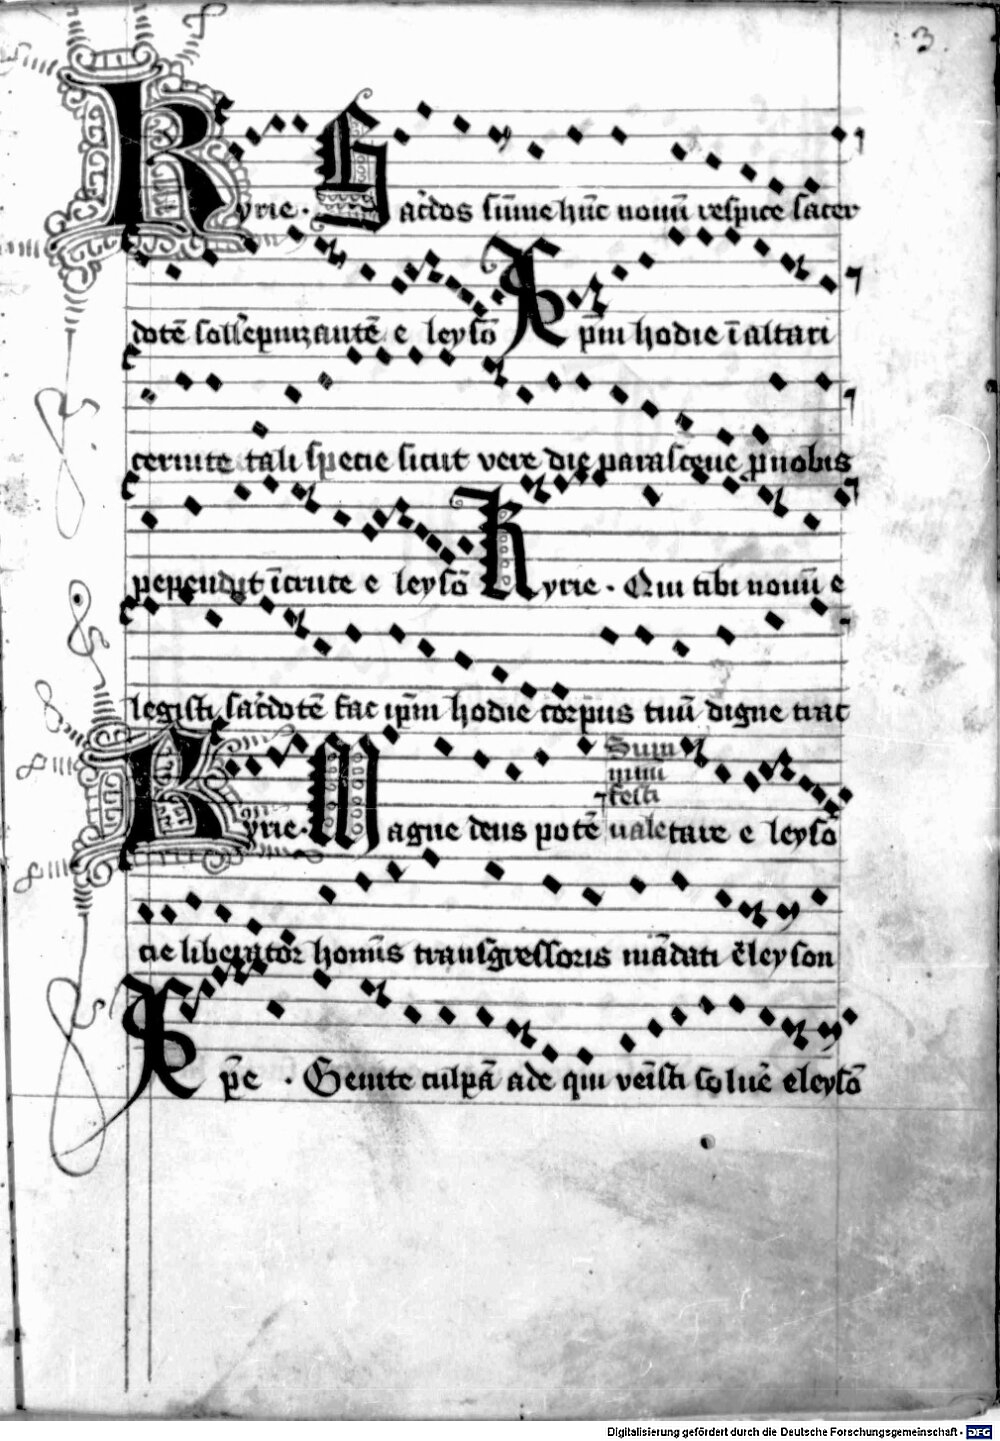 3.
Kyrie · Sac̄dos sūme hūc nouū respice sacer
dotē sollēpnizantē e leysō Xp̄m hodie ī altari
cernite tali specie sicut vere die parasceue p̱nobis
pependit īcruce e leysō Kyrie · Qui tibi nouū e
legisti sac̄dotē fac ip̄m hodie corpus tuū digne trac
Sum
mi
festi
tare e leysō
Kyrie · Magne deus potē uale
cie liberator homīs transgressoris mādati ēleyson
Xp̄e · Semite culpā ade qui venīsti soluē eleysō
Digitalisierung gefördert durch die Deutsche Forschungsgemeinschaft - DFG